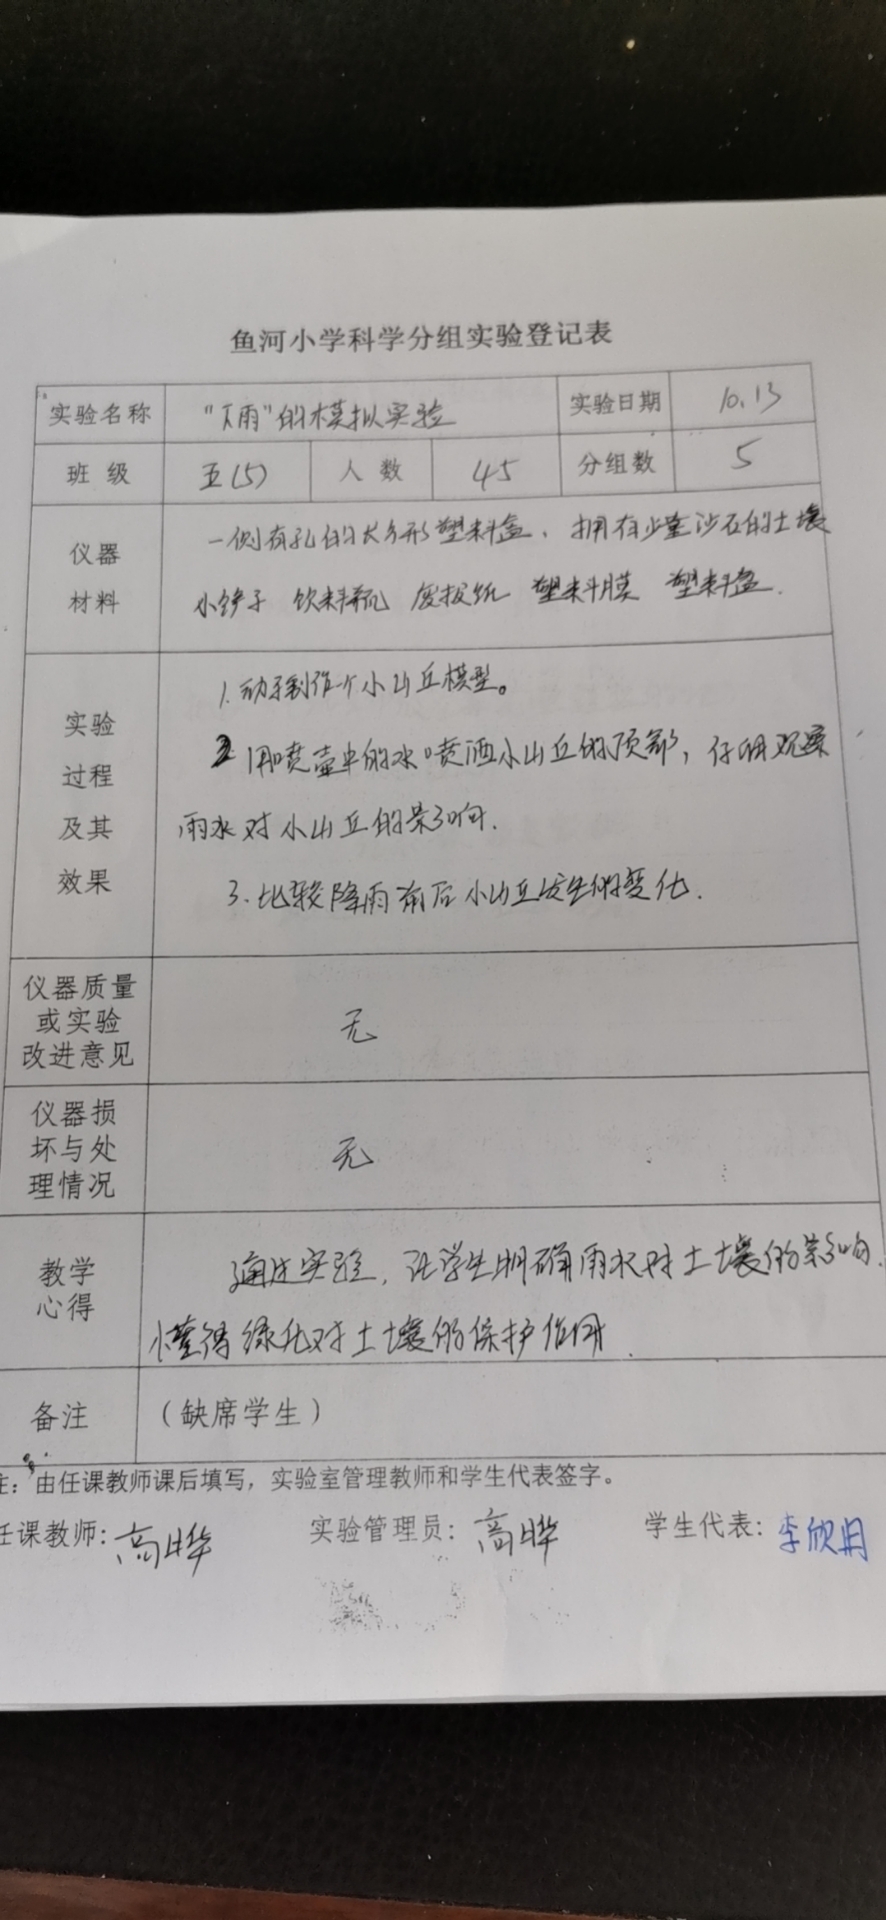 鱼河小学科学分组实验登记表
实验名称 "下雨"的模拟实验 实验日期 10.13
班 级 五(5) 人 数 45 分组数 5
仪器
材料
一侧有孔的长方形塑料盒、拥有少量沙石的土壤
小铲子 饮料瓶 废报纸 塑料膜 塑料盒.
实验
过程
及其
效果
1.动手制作一个小山丘模型。
2.用喷壶中的水喷洒小山丘的顶部，仔细观察
雨水对小山丘的影响.
3.比较降雨前后小山丘发生的变化.
仪器质量
或实验
改进意见
无
仪器损
坏与处
理情况
无
教学
心得
通过实验，让学生明确雨水对土壤的影响.
懂得绿化对土壤的保护作用.
备注 （缺席学生）
注：由任课教师课后填写，实验室管理教师和学生代表签字。
任课教师：高晔 实验管理员：高晔 学生代表：李欣月